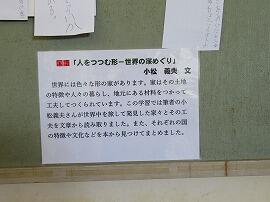 国語 「人をつつむ形－世界の家めぐり」
小松 義夫 文
世界には色々な形の家があります。家はその土地
の特徴や人々の暮らし、地元にある材料をつかって
工夫してつくられています。この学習では筆者の小
松義夫さんが世界中を旅して発見した家々とその工
夫を文章から読み取りました。また、それぞれの国
の特徴や文化などを本から見つけてまとめました。